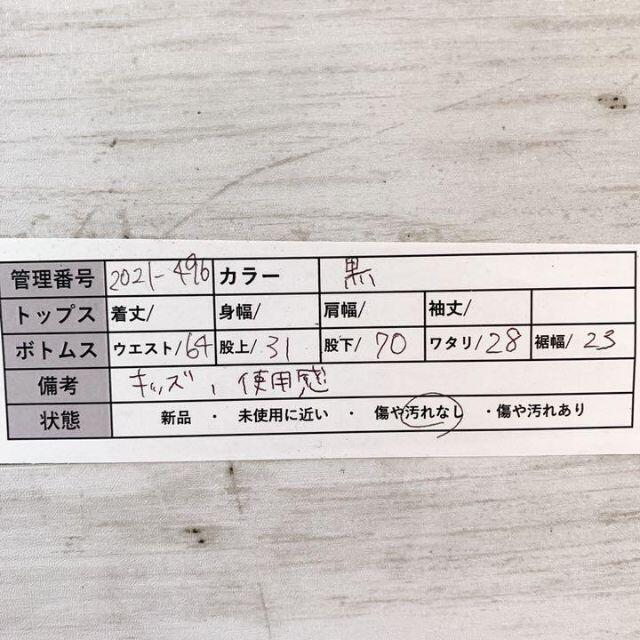 管理番号 2021-496 カラー 黒
トップス 着丈/ 身幅/ 肩幅/ 袖丈/
ボトムス ウエスト/64 股上/31 股下/70 ワタリ/28 裾幅/23
備考 キッズ、使用感
状態 新品 ・ 未使用に近い ・ 傷や汚れなし ・傷や汚れあり